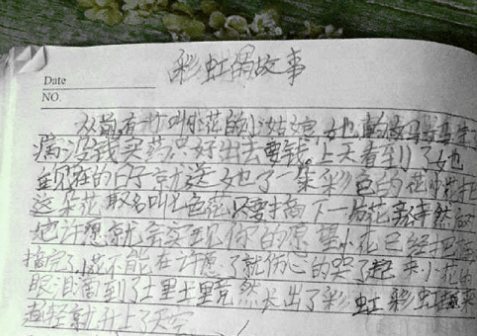 彩虹的故事
Date
NO.
从前,有个叫小花的小姑娘,她的妈妈生
病没钱买药只好出去要钱。上天看到了她
现在的日子就送她了一朵彩色的花小花把
这朵花取名叫七色花只要摘下一片花
她许愿就会实现你的愿望小花已经把
摘完了小花不能在许愿了就伤心的哭了起来小花的
眼泪滴到了土里土里竟然长出了彩虹彩虹越来
越轻就升上了天空